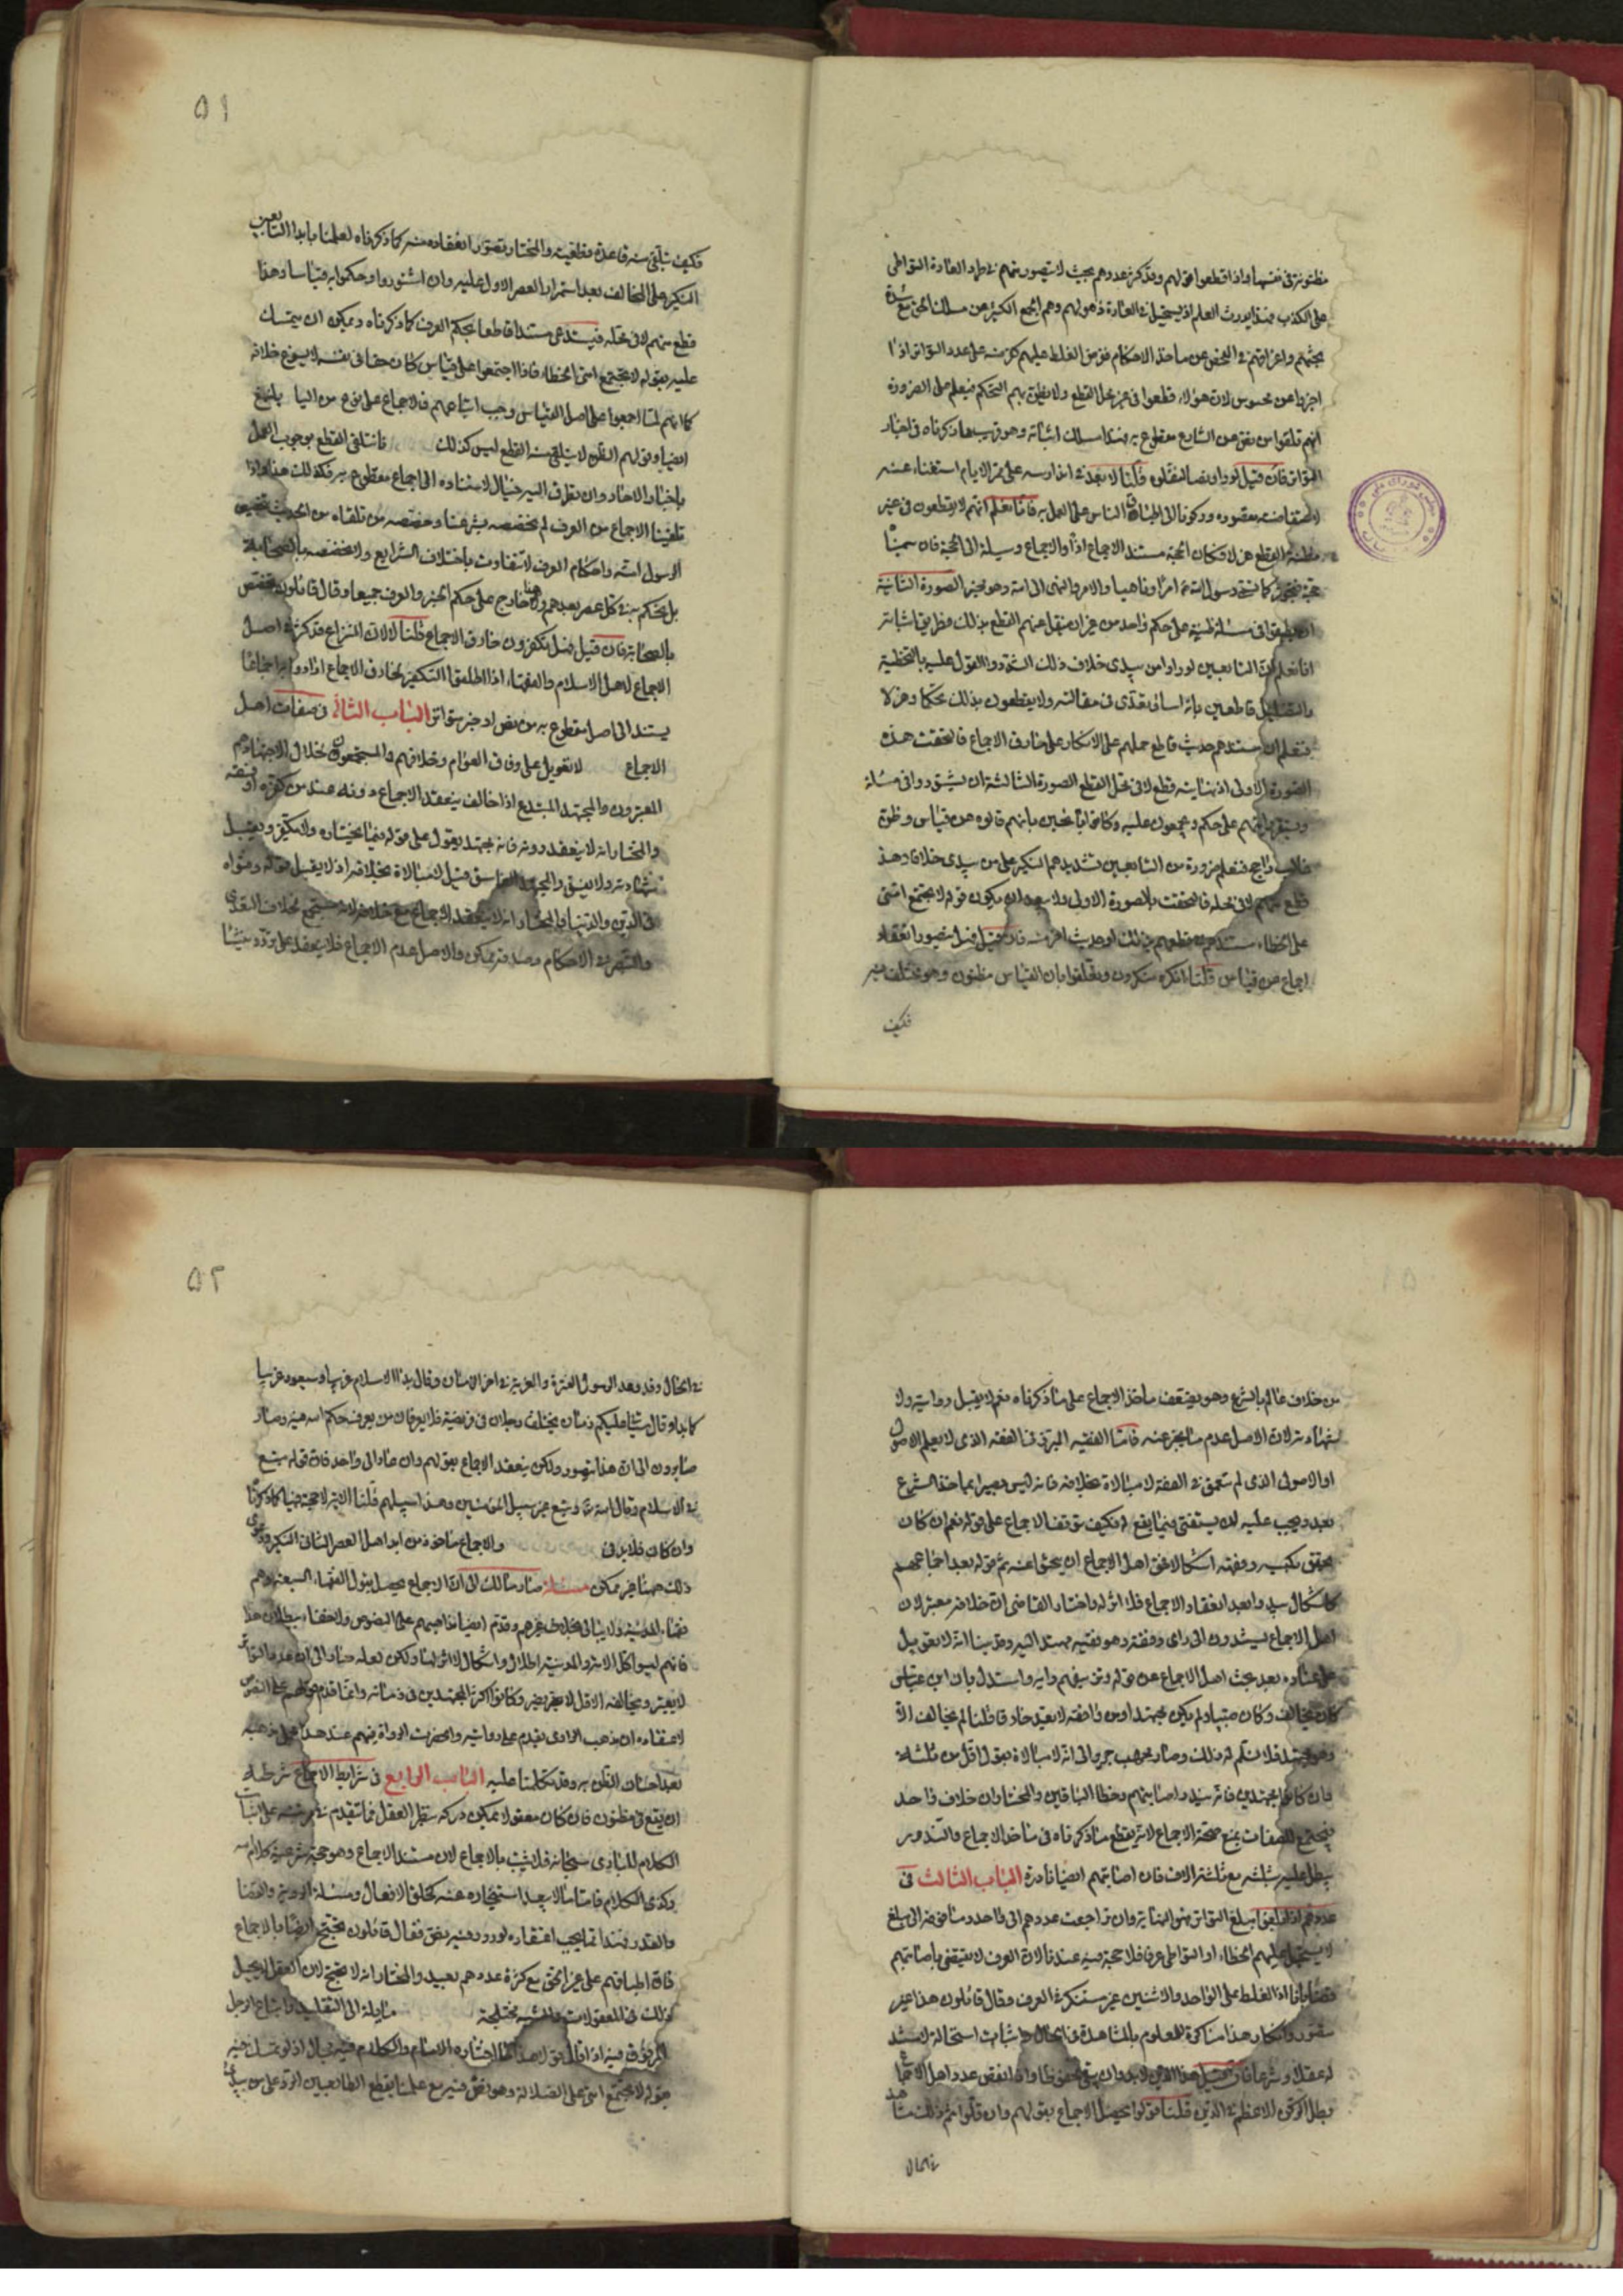 مظنونة في نفسها واذا قطعوا قولهم وقد كثر عددهم بحيث لا يتصور منهم في طرد العادة التواطي
على الكذب فهذا يورث العلم اذ يستحيل في العادة ذهولهم وهم الجمع الكثير عن مسلك الحق مع شدة
بحثهم واغراقهم في الفحص عن مأخذ الاحكام
اخبروا عن محسوس لان هؤلاء قطعوا في غير محل القطع ولا يظن بهم التحكم فيعلم على الضرورة
انهم تلقوا من نص عن الشارع مقطوع به هذا مسلك اثباته وهو قريب مما ذكرناه في اخبار
التواتر فان قيل لو ورد نص لنقلوه قلنا لا بعد في اندراسه على مر الايام استغناء عنه
الناس على العمل به فانا نعلم انهم لا يقطعون في غير
مظنة القطع هزلا فكان الحجة مستند الاجماع اذا والاجماع وسيلة الى الحجة فان سمينا
حجة تجوز كما نسمي رسول الله امرا وناهيا والامر والنهي الى الله وهو مخبر الصورة الثانية
ان يطبقوا في مسئلة ظنية على حكم واحد من غير ان ينقل عنهم القطع بذلك فطريق اثباته
انا نعلم ان التابعين لو راوا من يبدي خلاف ذلك لشددوا القول عليه بالتخطية
والتضليل قاطعين بانه اساء وتعدى في مقالته ولا يقطعون بذلك تحكما وهزلا
فنعلم ان مستندهم حديث قاطع حملهم على الانكار على خارق الاجماع فالتحقت هذه
الصورة بالاولى اذ بينا انه قطع لا في محل القطع الصورة الثالثة ان يشتوروا في مسئلة
على حكم ويجمعون عليه وكانوا بائحين بانهم قالوه عن قياس وظن
غالب راجح فنعلم ضرورة من التابعين تشديدهم النكير على من يبدي خلافا وهذا
قطع منهم لا في محله فالتحقت بالصورة الاولى ولا يبعد ان يكون قوله لا يجتمع امتي
على الخطاء مستندهم في قطعهم بذلك او حديث اخر منه فان قيل فهل يتصور انعقاد
اجماع عن قياس قلنا انكره منكرون وتعلقوا بان القياس مظنون وهو مختلف فيه
فكيف
٥١
فكيف يتلقى منه قاعدة قطعية والمختار تصور انعقاده منه كما ذكرناه لعلمنا بابداء التابعين
النكير على المخالف بعد استمرار العصر الاول عليه وان اشتوروا وحكموا به قياسا وهذا
قطع منهم لا في محله فيستدعي مستندا قاطعا بحكم العرف كما ذكرناه ويمكن ان يتمسك
عليه بقوله لا يجتمع امتي على الخطاء فاذا اجتمعوا على قياس كان حقا في نفسه لا يسوغ خلافه
كما انهم لما اجمعوا على اصل القياس وجب اتباعهم فالاجماع على نوع من
ايضا وقولهم الظن لا يتلقى منه القطع ليس كذلك فانا نتلقى القطع بوجوب العمل
باخبار الاحاد وان تطرق اليه خيال لاستناده الى اجماع مقطوع به فكذلك هذا
تلقينا الاجماع من العرف لم نخصصه بشرعنا وخصصه من تلقاه من الحديث
الرسول امته واحكام العرف لا تتفاوت باختلاف الشرايع ولا نخصصه بالصحابة
بل نحكم به في كل عصر بعدهم وهذا خارج على حكم الخبر والعرف جميعا وقال قائلون يختص
بالصحابة فان قيل فهل تكفرون خارق الاجماع قلنا لا لان النزاع قد كثر في اصل
الاجماع لاهل الاسلام والفقهاء اذا اطلقوا التكفير لخارق الاجماع ارادوا به اجماعا
يستند الى اصل مقطوع به من نص او خبر متواتر الباب الثاني في صفات اهل
الاجماع لا تعويل على وفاق العوام وخلافهم والمستجمعون خلال الاجتهاد هم
المعتبرون والمجتهد المبتدع اذا خالف ينعقد الاجماع دونه عند من كفره او فسقه
والمختار انه لا ينعقد دونه فانه مجتهد يعول على قوله فيما يختاره ولا نكفره ويقبل
شهادته ولا يفسق والمجتهد الفاسق قيل لا مبالاة بخلافه اذ لا يقبل قوله وفتواه
في الدين والدنيا والمختار انه لا ينعقد الاجماع مع خلافه
والتهور في الاحكام وصدقه ممكن والاصل عدم الاجماع فلا ينعقد على تردد نشأ
من خلاف عالم بالشرع وهو يضعف مأخذ الاجماع على ما ذكرناه نعم لا يقبل روايته ولا
شهادته لان الاصل عدم ما يخبر عنه فاما الفقيه المبرز في الفقه الذي لا يعلم الاصول
او الاصولي الذي لم يتعمق في الفقه لا مبالاة بخلافه فانه ليس بصيرا بمأخذ الشرع
بعد ويجب عليه ان يستفتي فيما يقع له فكيف توقف الاجماع على قوله نعم ان كان
يحقق بكيسه وفقهه اشكالا فحق اهل الاجماع ان يبحثوا عنه ثم قوله بعد اجماعهم
كاشكال يبدو بعد انعقاد الاجماع فلا اثر له واختار القاضي ان خلافه معتبر لان
اهل الاجماع يستندون الى راي وفقه وهو فقيه مهتد اليه وقد بينا انه لا تعويل
على عناده بعد بحث اهل الاجماع عن قوله وتوقيفهم رايه واستدل بان ابن عباس
كان يخالف وكان صبيا ولم يكن مجتهدا ومن وافقه لا بعيد حادقا قلنا لم يخالف الا
وهو مجتهد فلا نسلم له ذلك وصار محمد بن جرير الى انه لا مبالاة بقول اقل من ثلثة
فان كانوا مجتهدين فانه يبعد اصابتهم وخطأ الباقين والمختار ان خلاف واحد
مستجمع للصفات يمنع صحة الاجماع لانه يقطع ما ذكرناه في مأخذ الاجماع والندور
يبطل عليه بثلثة مع ثلثة الاف فان اصابتهم ايضا نادرة الباب الثالث في
عددهم اذا بلغوا مبلغ التواتر فهو النهاية وان تراجعت عددهم الى واحد وما فوقه الى مبلغ
لا يستحيل عليهم الخطاء او التواطي عرفا فلا حجة فيه عندنا لان العرف لا يقضي باصابتهم
قضاء باتا اذ الغلط على الواحد والاثنين غير مستنكر في العرف وقال قائلون هذا غير
متصور وانكار هذا مناكرة للمعلوم بالمشاهدة في الحال واثبات استحالة لا مستند
له عقلا وشرعا فان قيل هذا الدين لا بد وان يبقى محفوظا واذا انقص عدد اهل الاجتهاد
بطل الركن الاعظم في الدين قلنا قولوا يحصل الاجماع بقولهم وان قلوا ثم ذلك مشاهد
في الحال
٥٢
في الحال وقد وعد الرسول الفترة والعزبة في اخر الزمان وقال بدأ الاسلام غريبا وسيعود غريبا
كما بدا وقال سيأتي عليكم زمان يختلف رجلان في فريضة فلا يوجد من يعرف حكم الله فيه وصار
صائرون الى ان هذا يتصور ولكن ينعقد الاجماع بقولهم وان عاد الى واحد فان قوله متبع
في الاسلام وقال الله تع ويتبع غير سبيل المؤمنين وهذا سبيلهم قلنا الاية لا حجة فيها كما ذكرنا
وان كان فلا بد في والاجماع مأخوذ من ابداء اهل العصر الثاني النكير
ذلك ههنا غير ممكن مسئلة صار مالك الى ان الاجماع يحصل بقول الفقهاء السبعة وهم
فقهاء المدينة ولا يبالى بخلاف غيرهم وقدم ايضا مذاهبهم على النصوص ولا خفاء ببطلان هذا
فانهم ليسوا كل الامة والمدينة اطلال واشكال لا اثر لها ولكن لعله صار الى ان عدد التواتر
لا يعتبر ومخالفة الاقل لا يقدح وكانوا اكثر المجتهدين في زمانه وانما قدم قولهم على النصوص
لاعتقاده ان مذهب الراوي يقدم على روايته وانحصرت الرواة فيهم عنده هذا محمل مذهبه
بعد احسان الظن به وقد تكلمنا عليه الباب الرابع في شرايط الاجماع شرطه
ان يقع في مظنون فان كان معقولا يمكن دركه بنظر العقل فما تقدم في مرتبته على اثبات
الكلام للباري سبحانه فلا يثبت بالاجماع لان مستند الاجماع وهو حجة شرعية كلامه
وكذى الكلام فاما ما لا يبعد استيخاره عنه كخلق الافعال ومسئلة الروية والقضا
والقدر فهذا مما يجب اعتقاده لورود فيه نص فقال قائلون يحتج ايضا بالاجماع
فان اطباقهم على غير الحق مع كثرة عددهم بعيد والمختار انه لا يحتج لان العقل لا يحيل
ذلك في المعقولات والشبه مختلجة مايلة الى التقليد واتباع الرجل
المرموق فيه اذا قال قولا هذا ما اختاره الامام والكلام فيه مجال اذ لو تمسك فيه
بقوله لا يجتمع امتي على الضلالة وهو نص فيه مع علمنا بقطع التابعين الرد على من يبدي